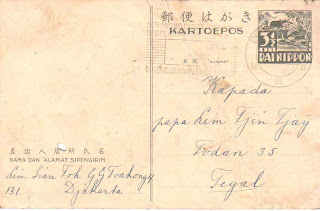 郵便はがき
KARTOEPOS
3½
CENT
DAI NIPPON
'ALAMAT
Kapada
papa Lim Tjin Tjay
Fodan 35
Tegal
差出人居所氏名
NAMA DAN 'ALAMAT SIPENGIRIM
Lim Sian Toh G.G Toahong 4
131 Djakarta